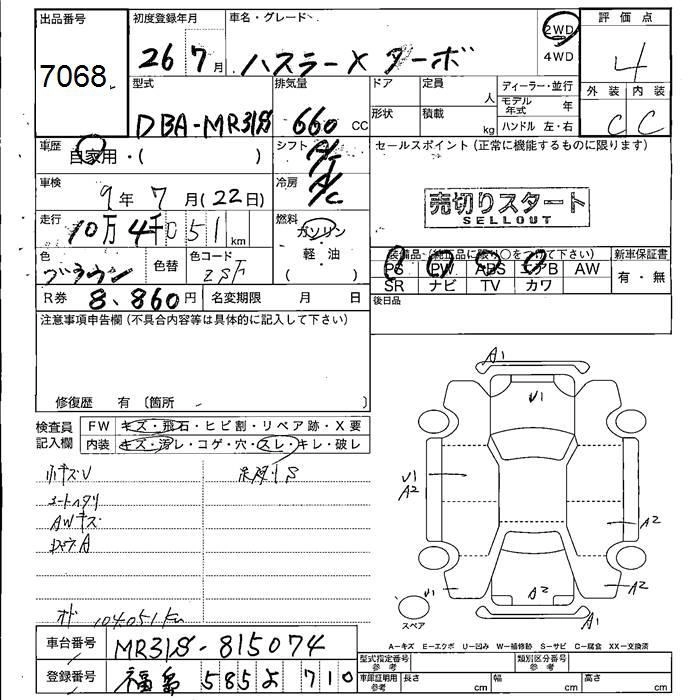 出品番号
7068
初度登録年月
26 7月
車名・グレード
ハスラー X ターボ
2WD
4WD
評価点
4
外装 内装
C C
型式
DBA-MR31S
排気量
660 CC
ドア
形状
定員
人
積載
kg
ディーラー・並行
モデル年式 年
ハンドル 左・右
車歴
自家用・( )
シフト
A/T
セールスポイント (正常に機能するものに限ります)
売切りスタート
SELLOUT
車検
9年 7月 (22日)
冷房
A/C
走行
10万 4千 051 km
燃料
ガソリン
軽油
( )
色
ブラウン
色替
色コード
ZSF
装備品・(純正品に限り〇をつけて下さい)
PS PW ABS エアB AW
SR ナビ TV カワ
新車保証書
有・無
R券 8.860円
名変期限 月 日
後日品
注意事項申告欄 (不具合内容等は具体的に記入して下さい)
修復歴 有 〔箇所 〕
検査員記入欄
FW キズ・飛石・ヒビ割・リペア跡・X要
内装 キズ・汚レ・コゲ・穴・スレ・キレ・破レ
AWキズ
104051km
A1
U1
U1
A2
A2
U1
A2
A2
A1
スペア
A=キズ E=エクボ U=凹み W=補修跡 S=サビ C=腐食 XX=交換済
車台番号 MR31S-815074
登録番号 福島 585 よ 710
型式指定番号 参考
類別区分番号 参考
車庫証明用 参考
長さ cm
幅 cm
高さ cm